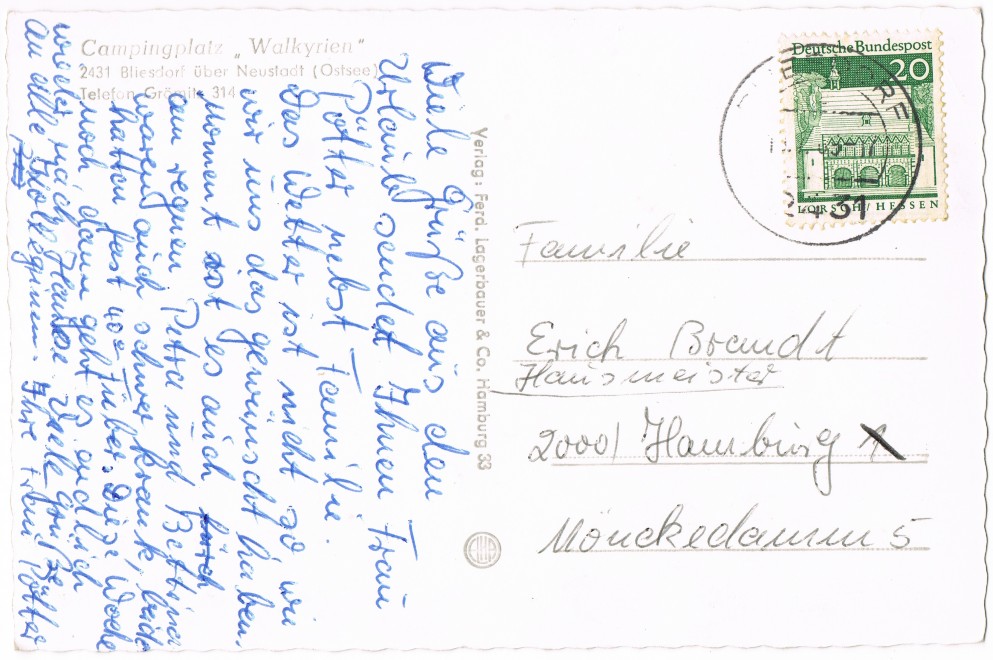 Campingplatz „Walkyrien"
2431 Bliesdorf über Neustadt (Ostsee)
Telefon Grömitz 314
Viele Grüße aus den
Urlaub sendet Ihnen Frau
Pötter nebst Familie.
Das Wetter ist nicht so wie
wir uns das gewünscht haben.
Moment ist es auch
am regnen Petra und Bettina
waren auch schwer krank, beide
hatten fast 40° Fieber. Diese Woche
noch dann geht es endlich
wieder nach Hause. Viele Grüße
an alle Kolleginnen. Ihre Frau Pötter
Verlag: Ferd. Lagerbauer & Co. Hamburg 33
Deutsche Bundespost
20
LORSCH/HESSEN
31
Familie
Erich Brandt
Hausmeister
2000 Hamburg 1
Mönckedamm 5